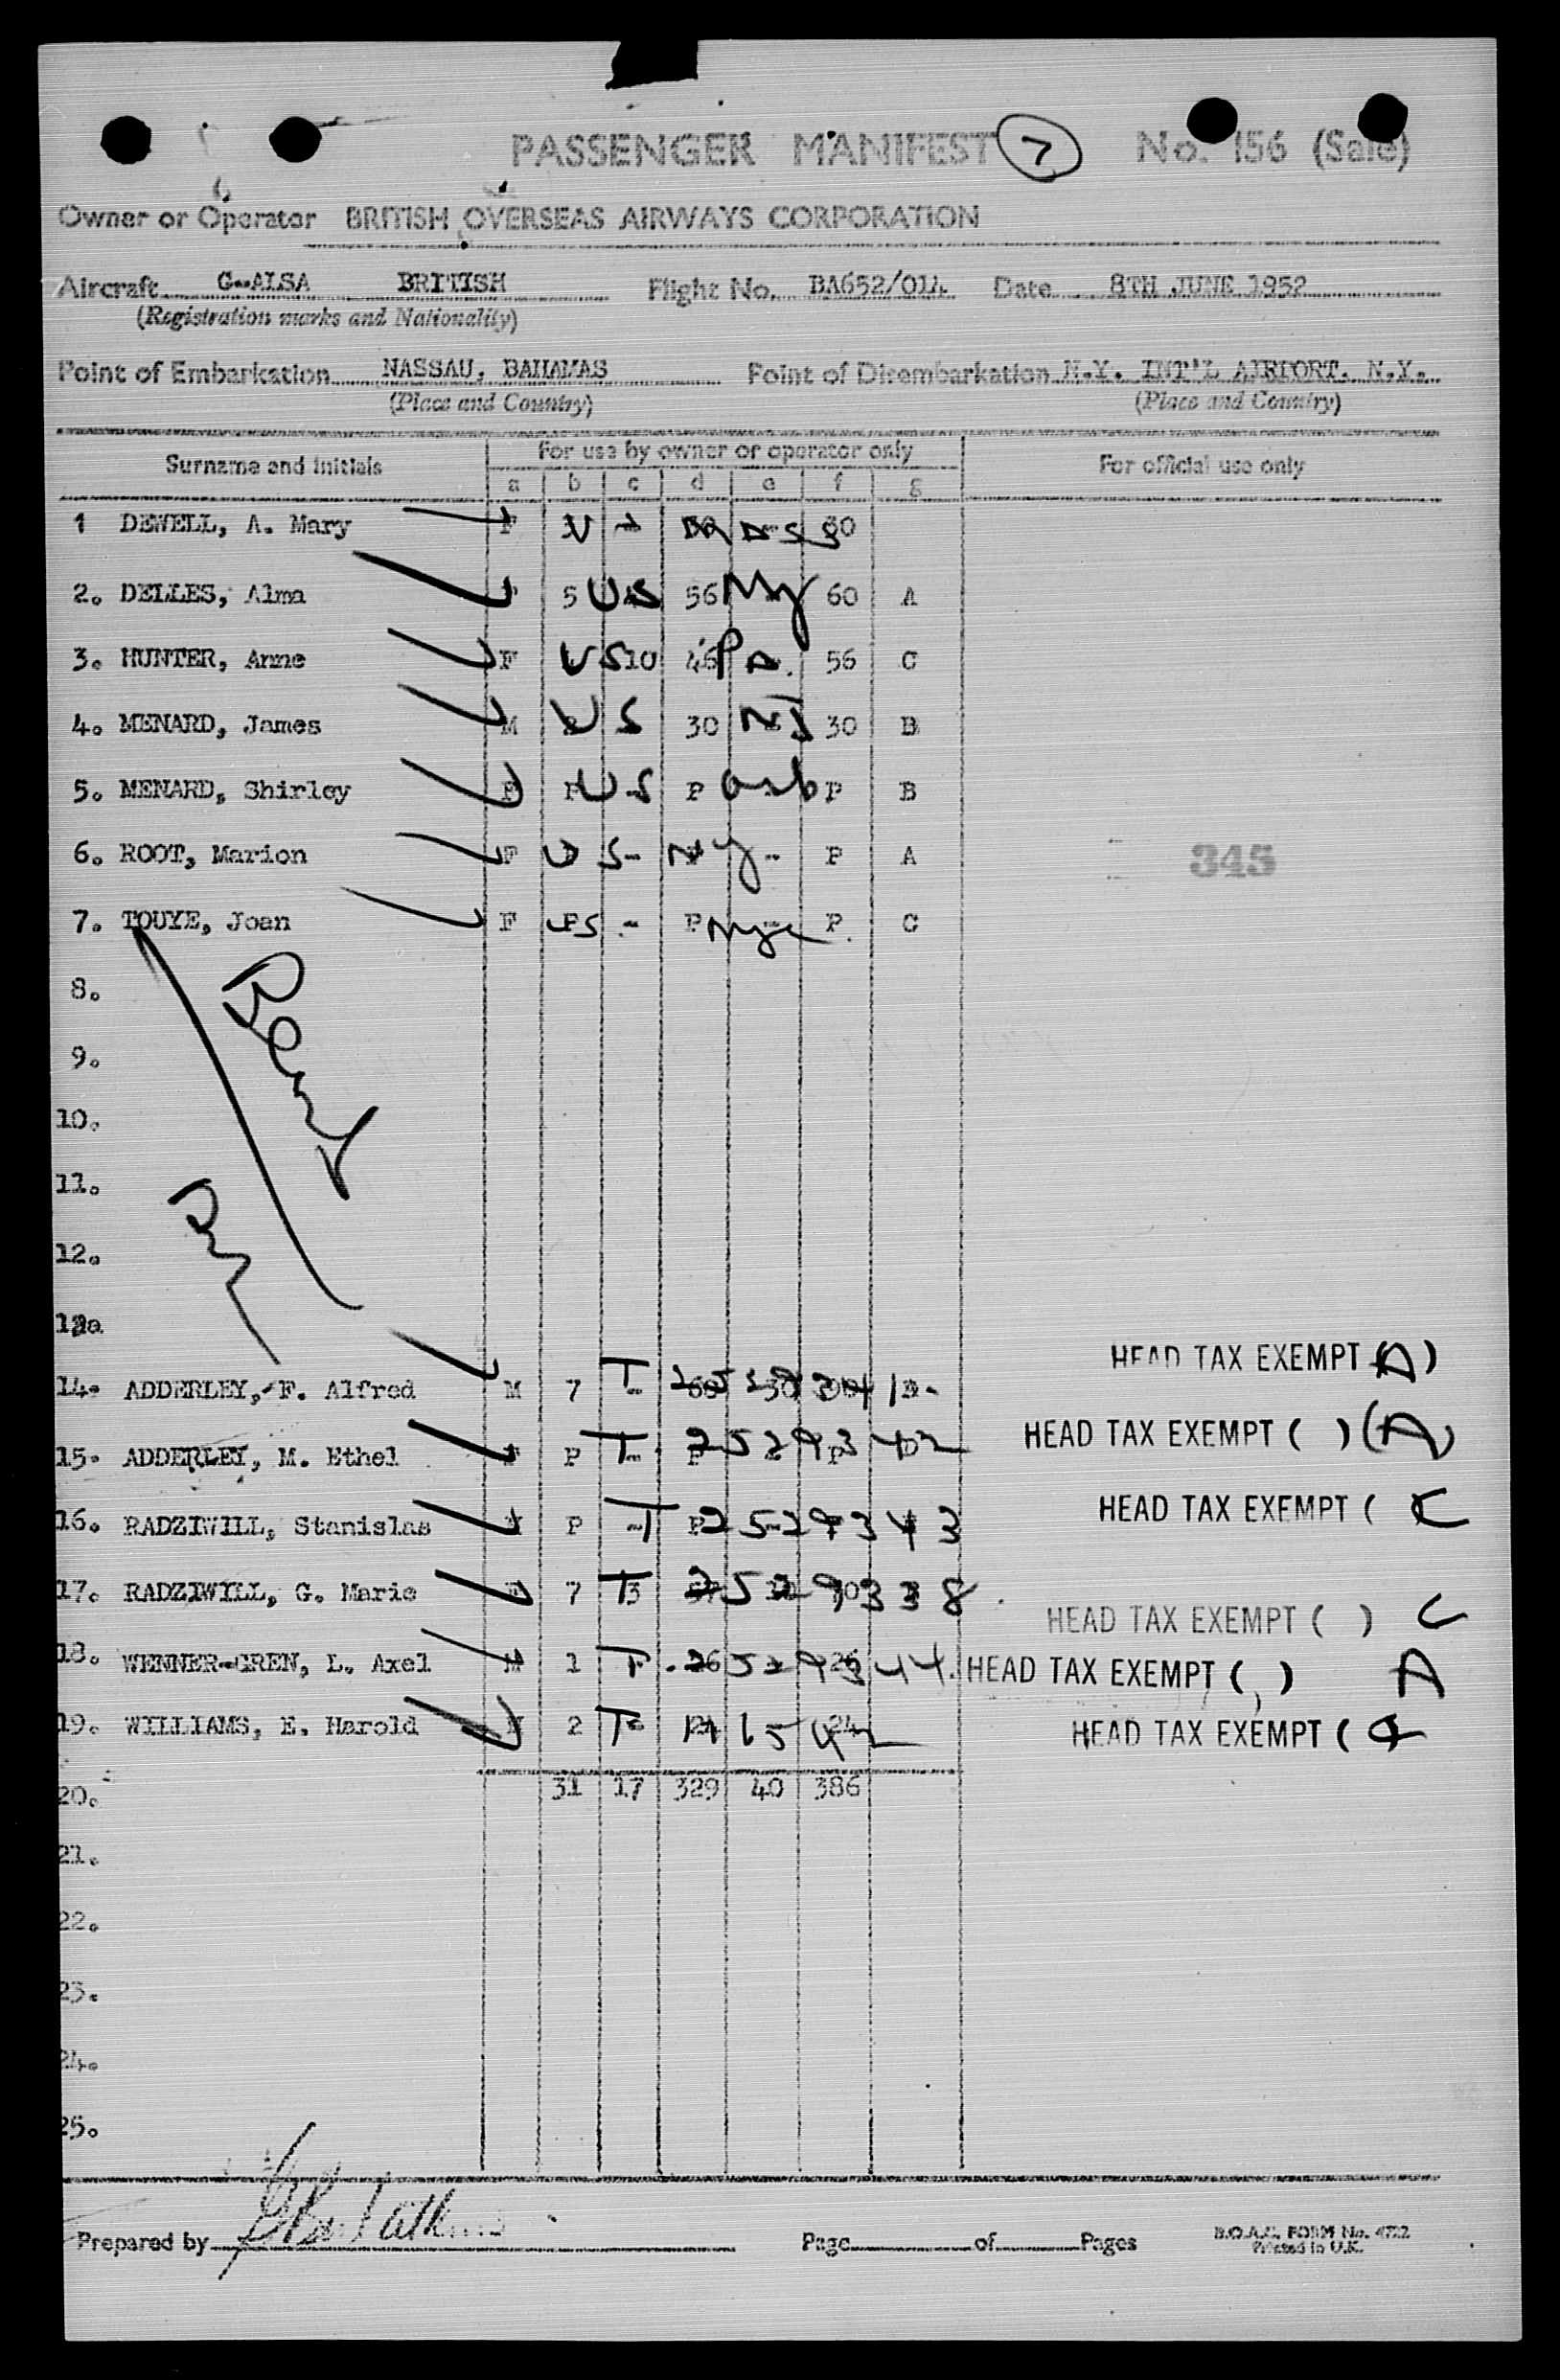 PASSENGER MANIFEST 7 No. 156 (Sale)
Owner or Operator BRITISH OVERSEAS AIRWAYS CORPORATION
Aircraft G-ALSA BRITISH Flight No. BA652/014 Date 8TH JUNE 1952
(Registration marks and Nationality)
Point of Embarkation NASSAU, BAHAMAS Point of Disembarkation N.Y. INT'L AIRPORT. N.Y.
(Place and Country) (Place and Country)
Surname and initials For use by owner or operator only For official use only
a b c d e f g
1 DEWELL, A. Mary F
2. DELLES, Alma F 5 US 56 NY 60 A
3. HUNTER, Anne F US 10 46 Pa. 56 C
4. MENARD, James M US 30 NJ 30 B
5. MENARD, Shirley F P US P P B
6. ROOT, Marion F US - NY - P A
345
7. TOUYE, Joan F P US - P NYC P. C
8.
9.
10.
11.
12.
HEAD TAX EXEMPT (A)
14. ADDERLEY, F. Alfred M 7 T
HEAD TAX EXEMPT ( ) (A)
15. ADDERLEY, M. Ethel F P T 2529342
HEAD TAX EXEMPT ( C
16. RADZIWILL, Stanislas M P T P 2529343
17. RADZIWILL, G. Marie F 7 T 3 2529338
HEAD TAX EXEMPT ( ) C
18. WENNER-GREN, L. Axel M 1 T 26 2529344. HEAD TAX EXEMPT ( ) A
19. WILLIAMS, E. Harold M 2 T 24 HEAD TAX EXEMPT (
20. 31 17 329 40 386
21.
22.
23.
24.
25.
Prepared by Page of Pages B.O.A.C. FORM No. 4722
Printed in U.K.